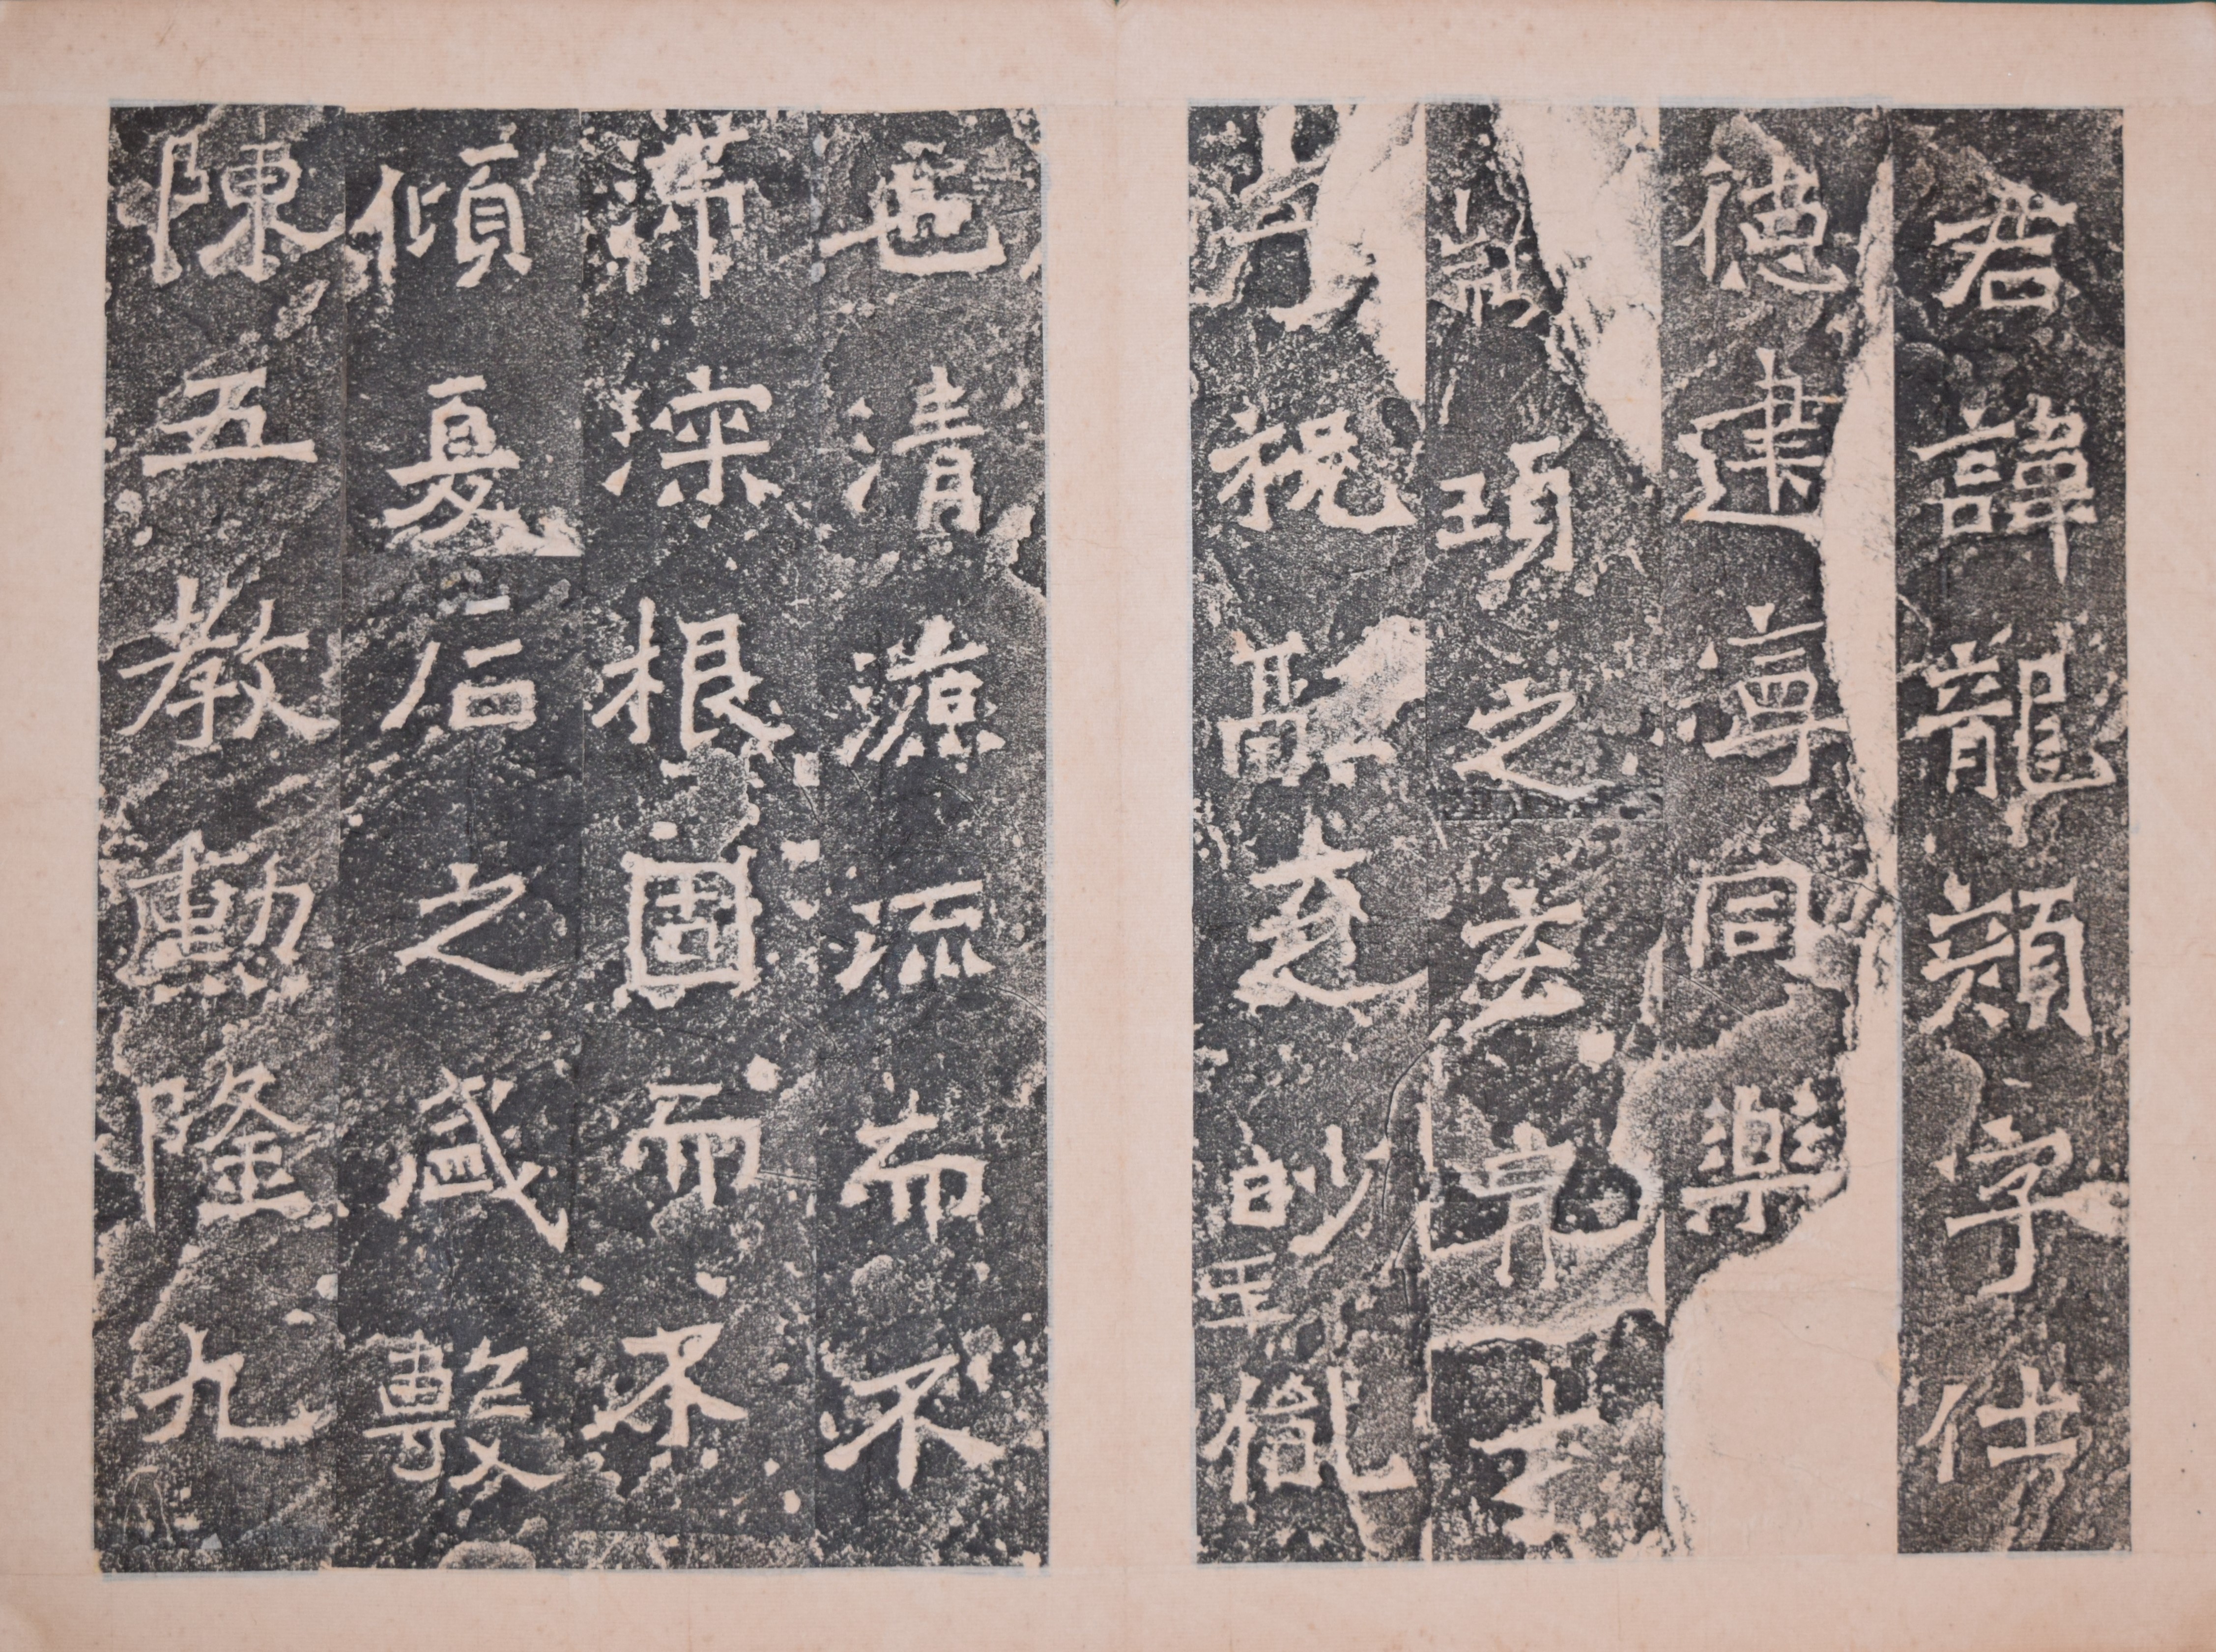 君諱龍顏字仕
德建寧同樂
頊之玄冑才
祝融眇胤
也清源流而不
滯深根固而不
傾夏后之盛敷
陳五教勳隆九